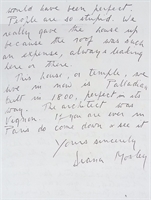 would have been perfect.
People are so stupid. We
really gave the house up
because the roof was such
an expense, always leaking
here or there
This house, or temple, we
live in now is Palladian
built in 1800, perfect in its
way. The architect was
Vignon. If you are ever in
Paris do come down & see it
Yours sincerely
Diana Mosley